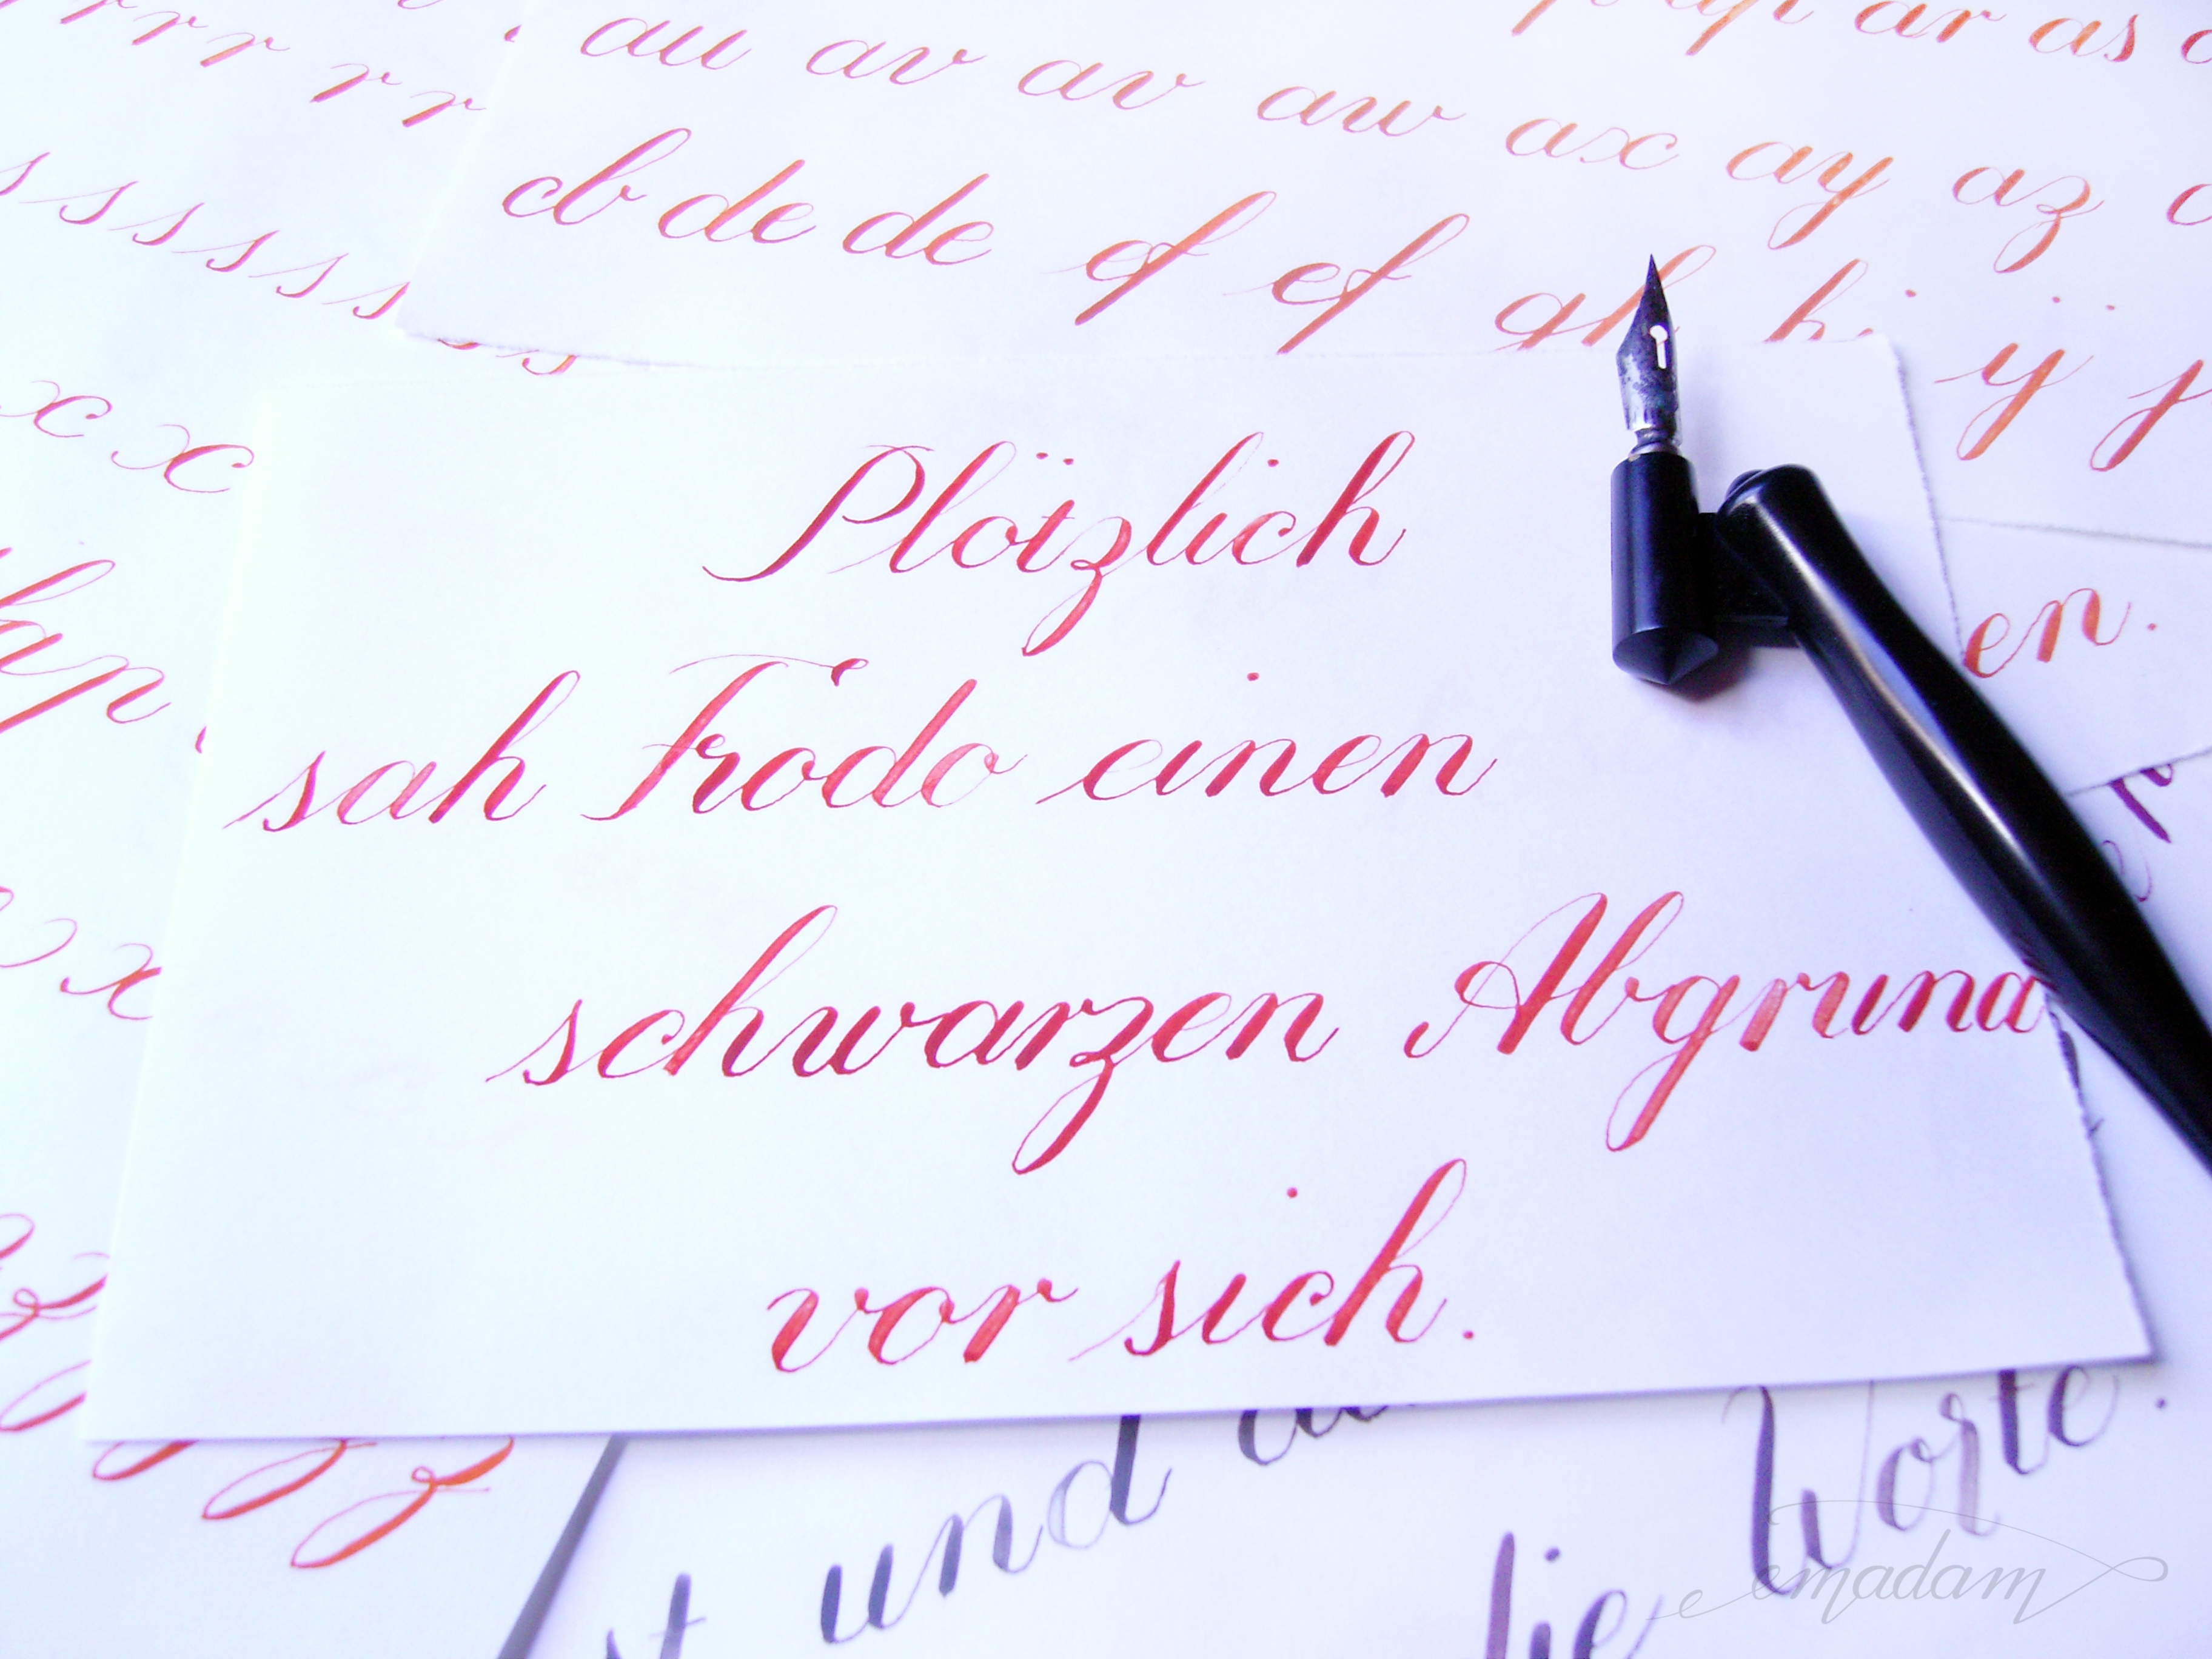 r r r r r
au av av aw ax ay az
ar as
cb de de ef ef gh hi ij
s s s s s s
x x
Plötzlich
en.
sah Frodo einen
schwarzen Abgrund
x
vor sich.
und
Worte.
die
emadam